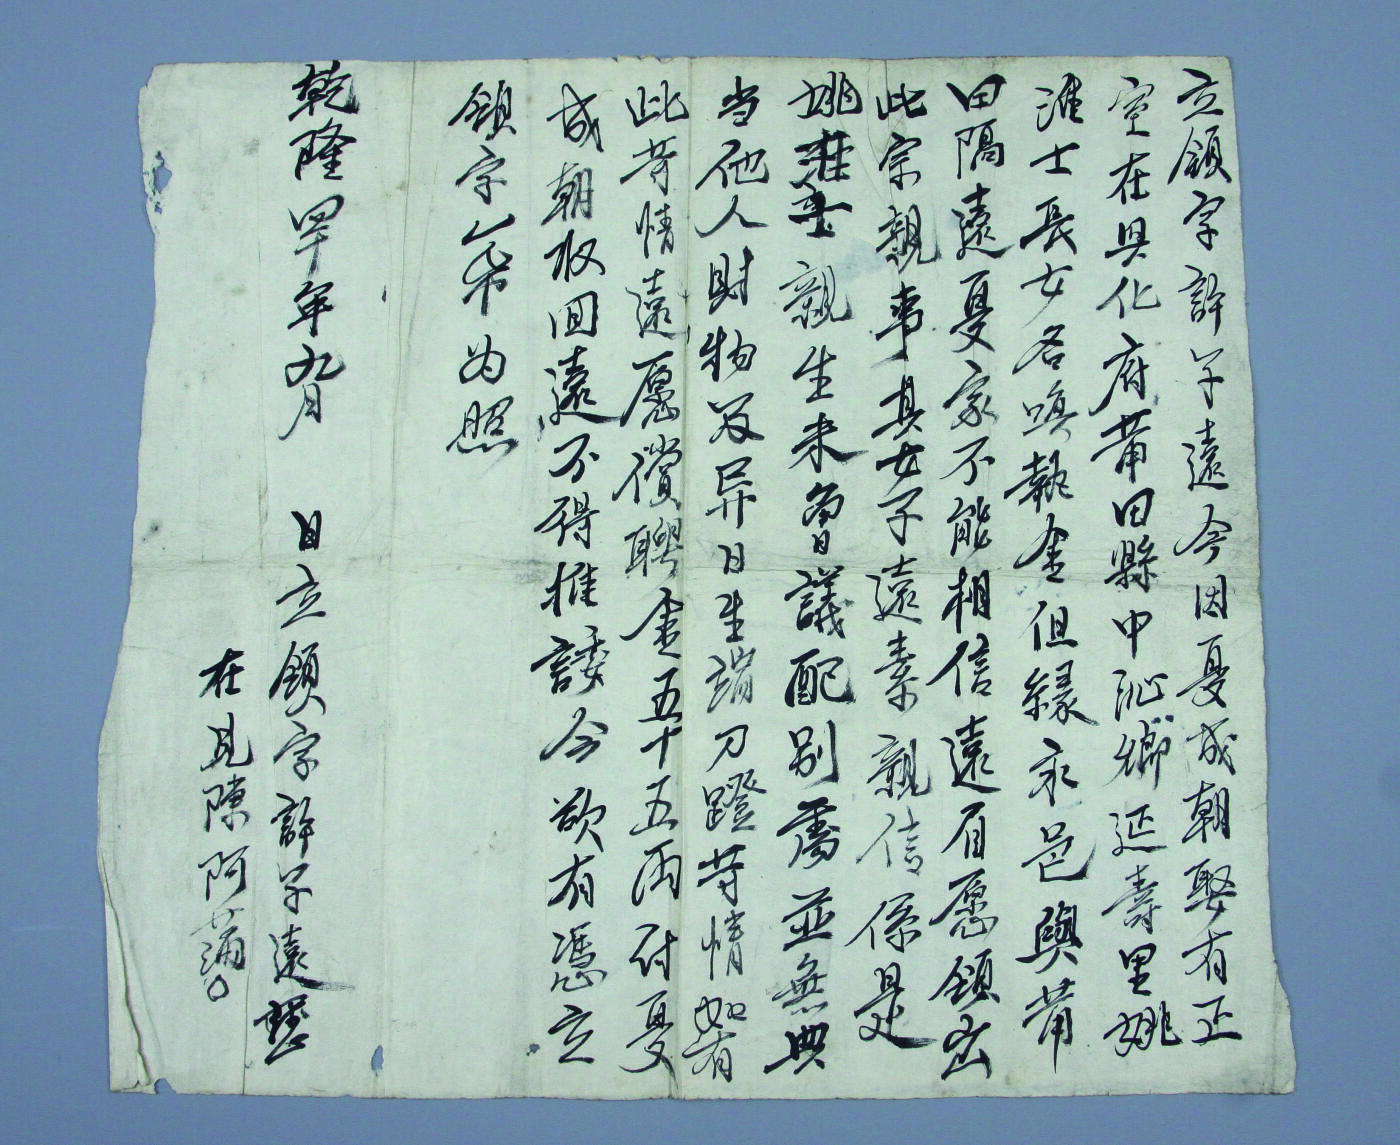 立領字許子遠今因憂成朝娶有正
室在興化府莆田縣中沁鄉延壽里姚
淮士長女名喚執金但緣永邑與莆
田隔遠憂家不能相信遠自愿領出
此宗親事其女子遠素親信係是
姚淮士親生未曾議配別處並無典
当他人財物及异日生端刁蹬等情如有
此等情遠愿償聘金五十五両付憂
成朝收回遠不得推諉今欲有憑立
領字一帋为照
乾隆四十年九月 日立領字許子遠
在見陳阿蒲